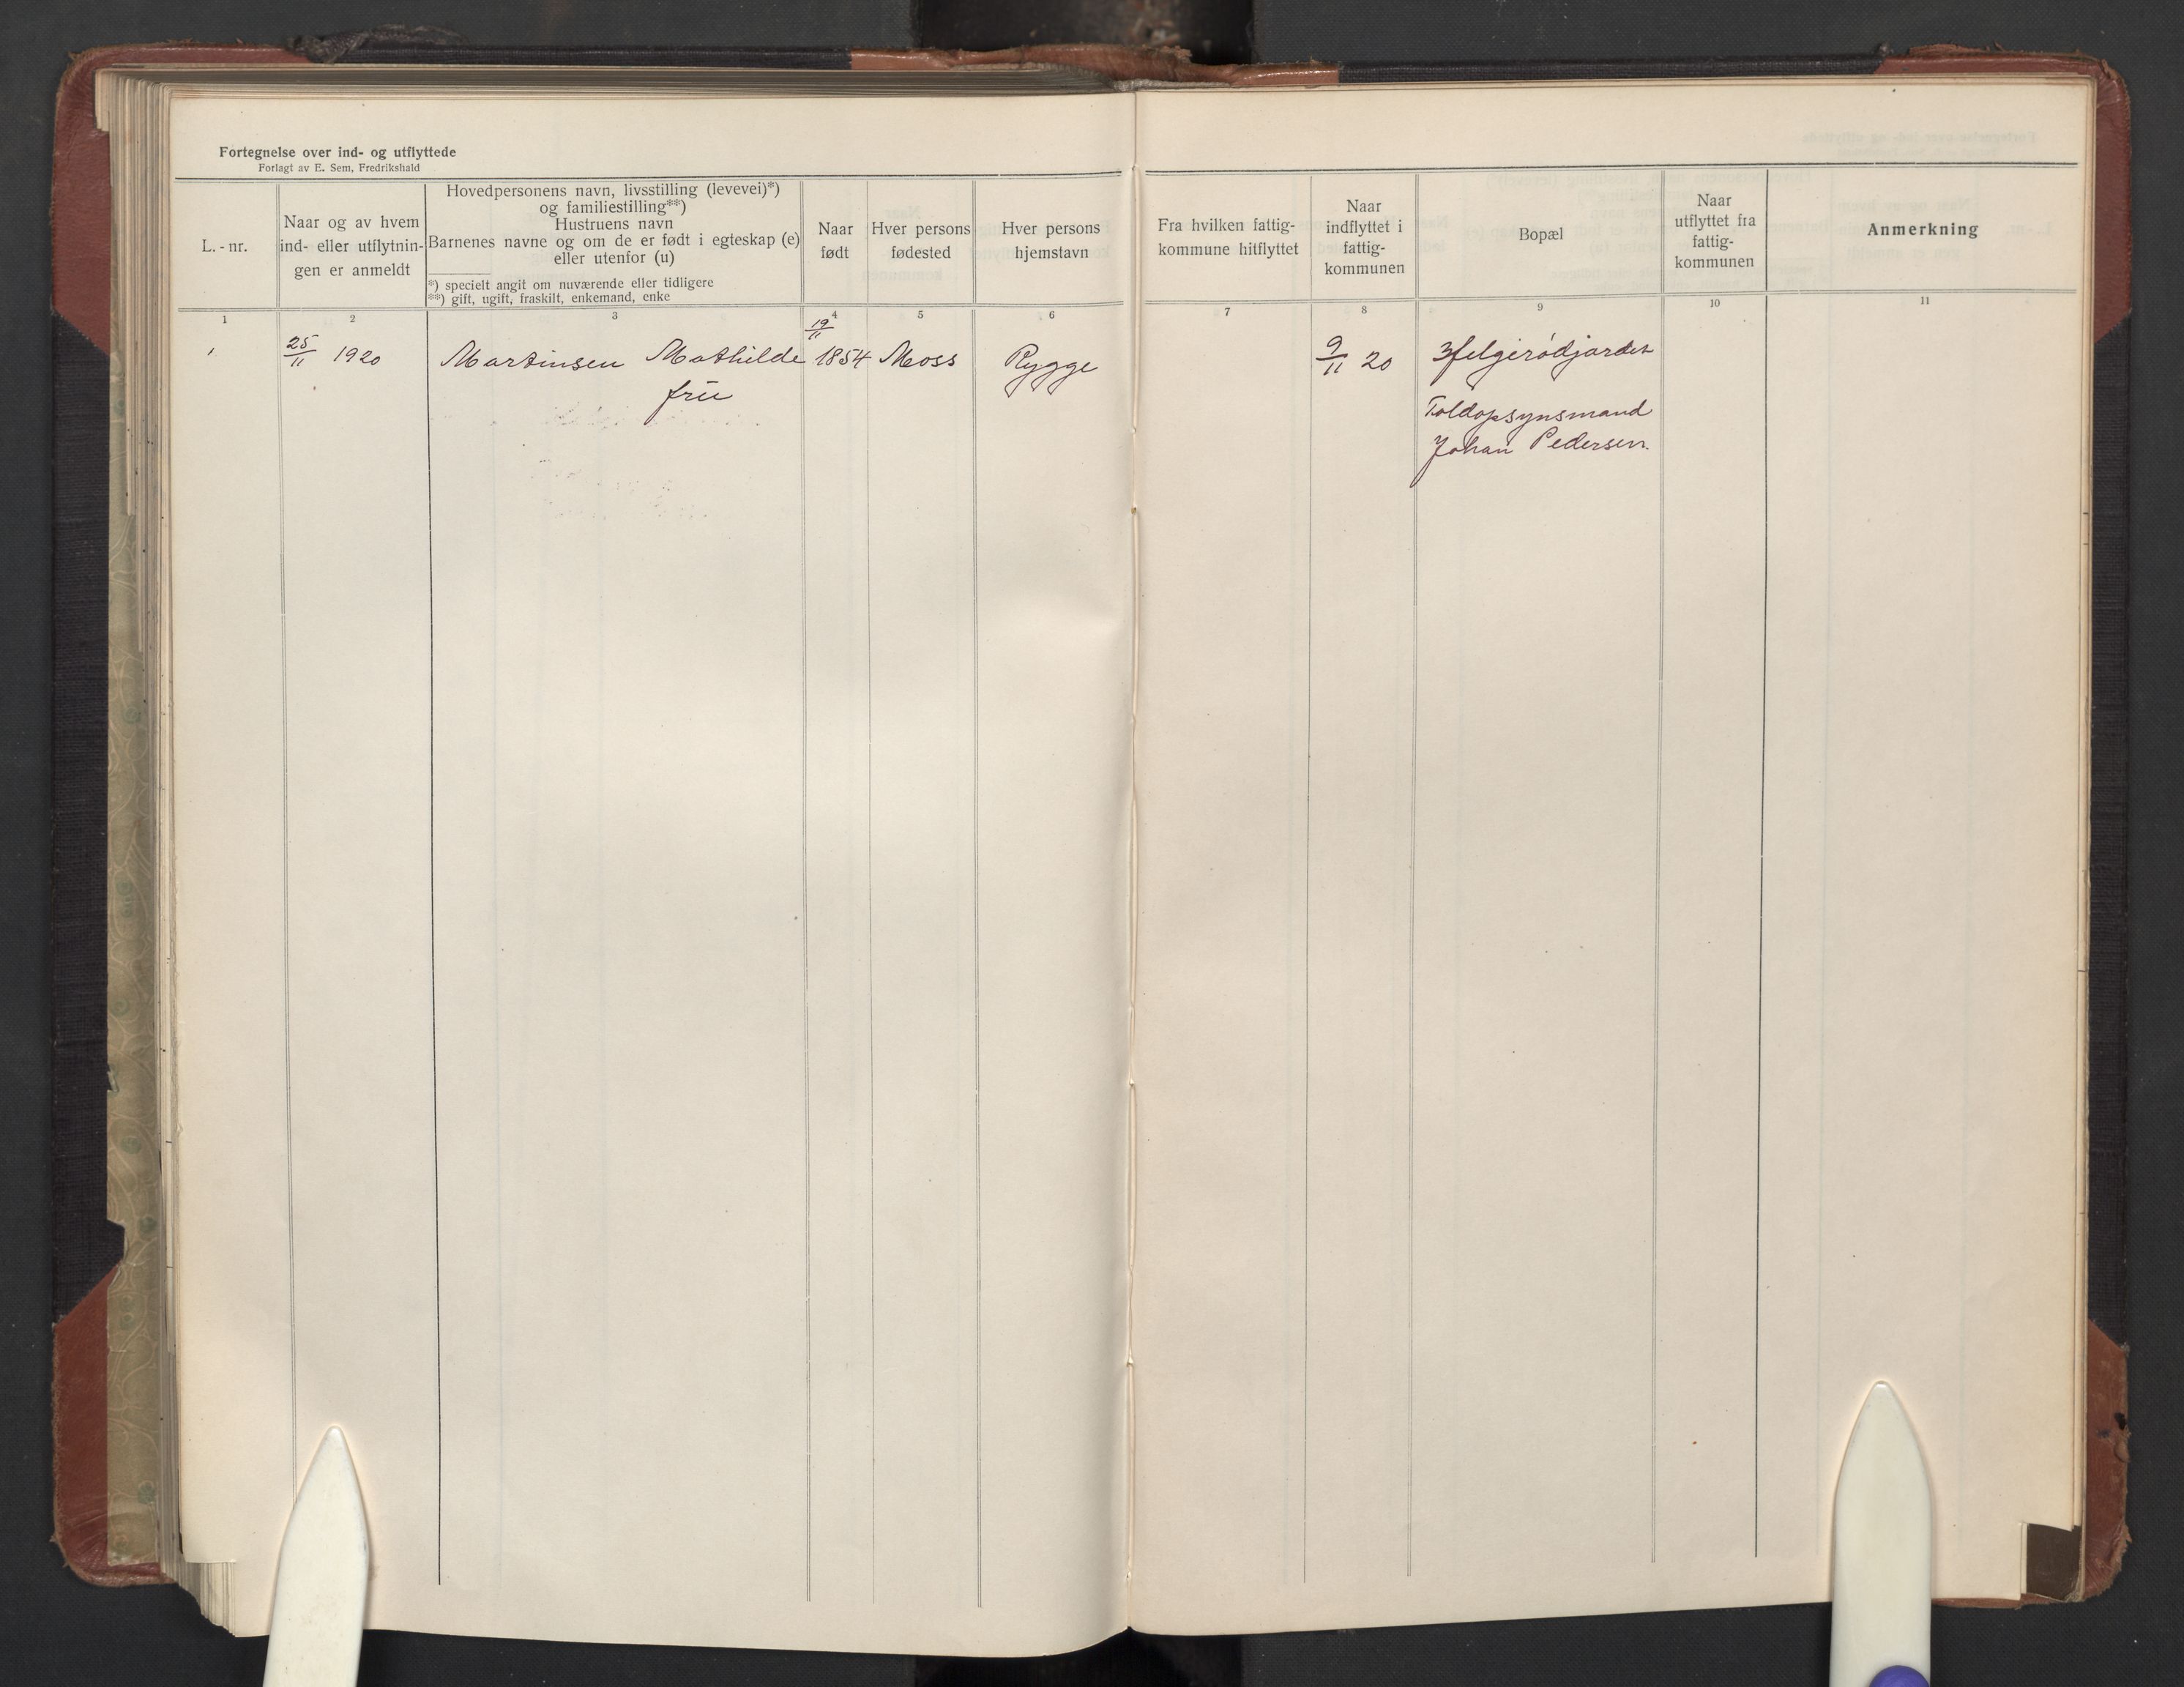 Fortegnelse over ind- og utflyttede
Forlagt av E. Sem, Fredrikshald
L.-nr.
Naar og av hvem
ind- eller utflytnin-
gen er anmeldt
Hovedpersonens navn, livsstilling (levevei)*)
og familiestilling**)
Hustruens navn
Barnenes navne og om de er født i egteskap (e)
eller utenfor (u)
*) specielt angit om nuværende eller tidligere
**) gift, ugift, fraskilt, enkemand, enke
Naar
født
Hver persons
fødested
Hver persons
hjemstavn
Fra hvilken fattig-
kommune hitflyttet
Naar
indflyttet i
fattig-
kommunen
Bopæl
Naar
utflyttet fra
fattig-
kommunen
Anmerkning
1 2 3 4 5 6 7 8 9 10 11
1
25/11 1920
Martinsen Mathilde
frü
19/11
1854
Moss
Rygge
9/11 20
Toldopsynsmand
Johan Pedersen.